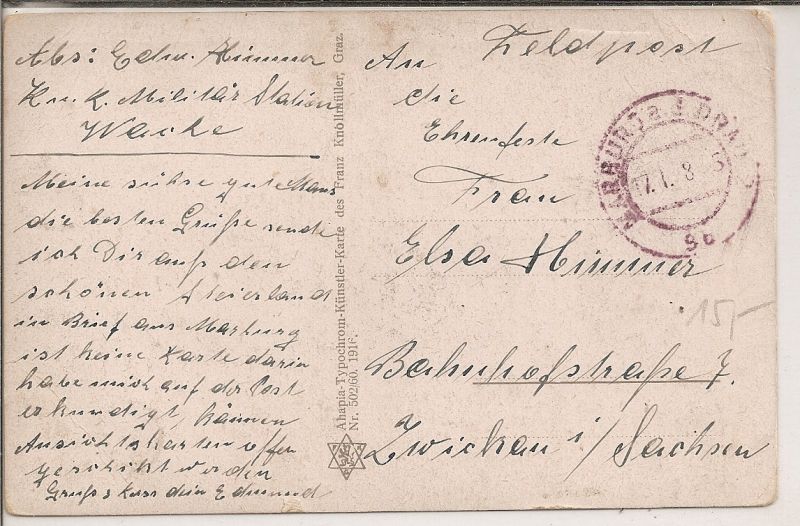 Abs: Edm. Himmer
K.u.K. Militär Station
Wacke
Meine sühse gute Maus
die besten Grüße sende
ich Dir aus den
schönen Steierland
in Brief aus Marburg
ist keine Karte darin
habe mich auf der Post
erkundigt, können
Ansichtskarten offen
geschikt werden
Gruß & kuss dein Edmund
Ahapia-Typochrom-Künstler-Karte des Franz Knöllmüller, Graz.
Nr. 502/60. 1916.
Feldpost
An
die
Ehrenfeste
Frau
Elsa Himmer
Bahnhofstraße 7.
Zwickau i/Sachsen
MARBURG a. d. DRAU 3
17.I.8
15/-